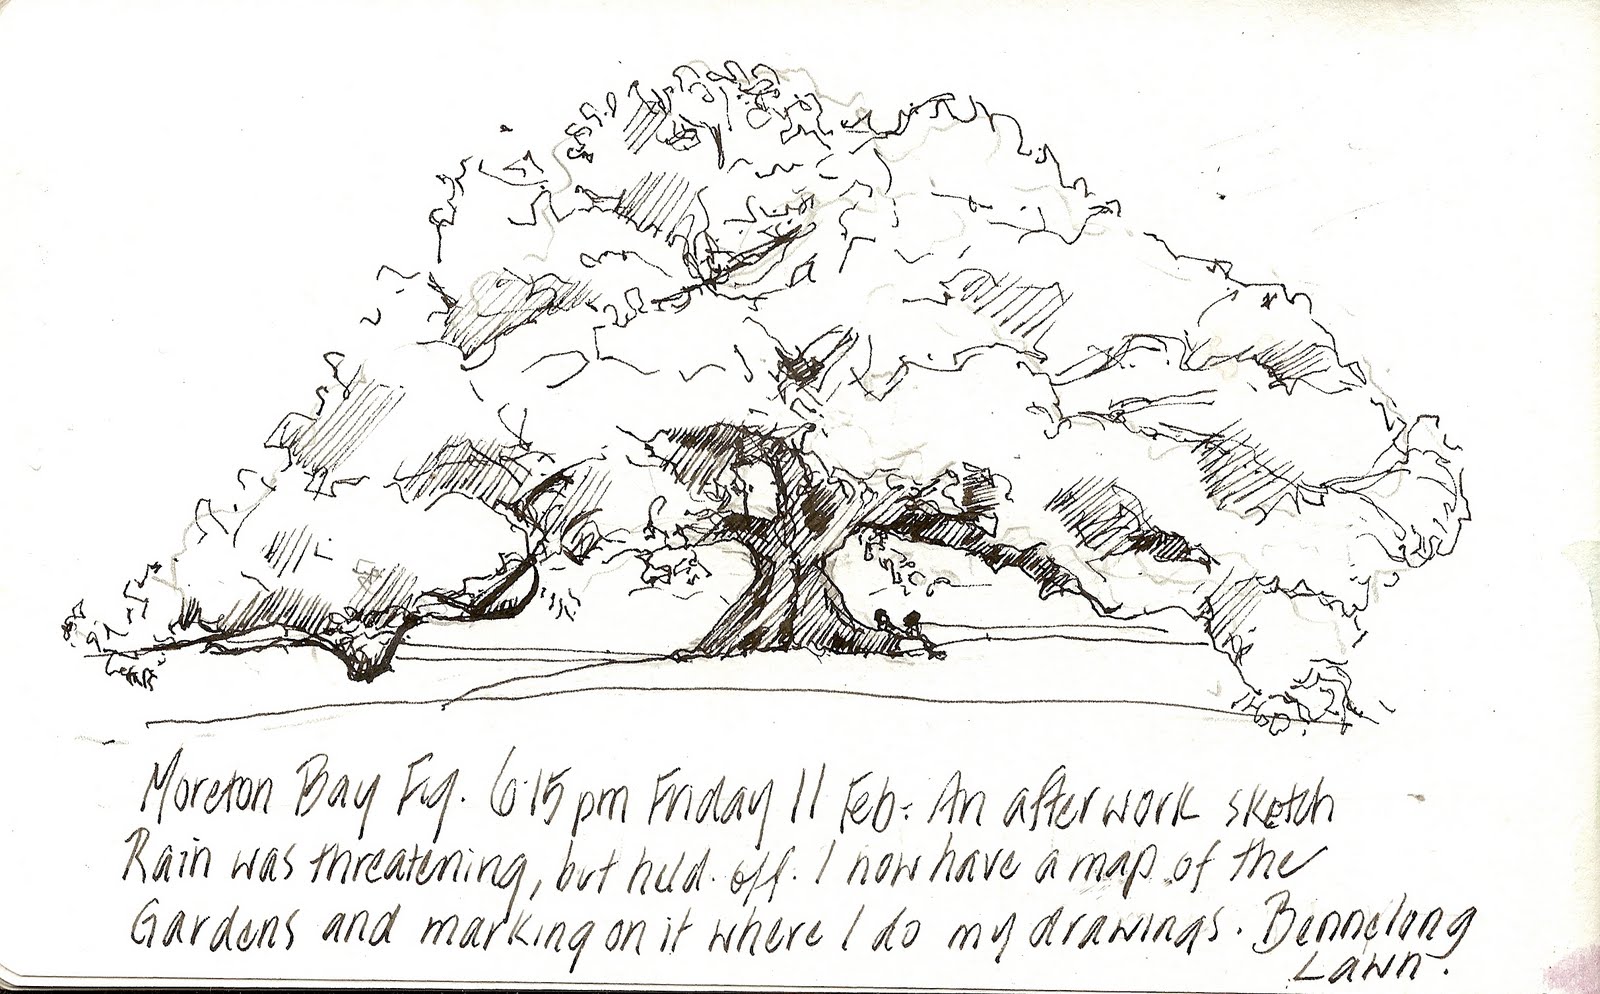 Moreton Bay Fig. 6.15pm Friday 11 Feb: An after work sketch
Rain was threatening, but held off. I now have a map of the
Gardens and marking on it where I do my drawings. Bennelong
Lawn.